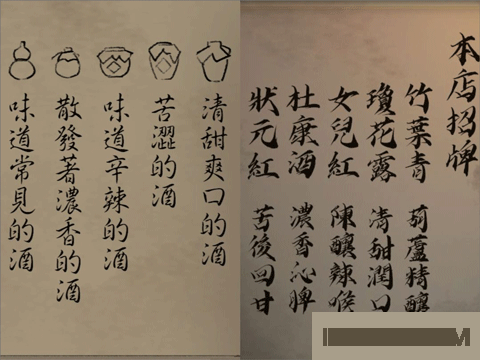 本店招牌
竹葉青 葫蘆精釀
瓊花露 清甜潤口
女兒紅 陳釀辣喉
杜康酒 濃香沁脾
狀元紅 苦後回甘
清甜爽口的酒
苦澀的酒
味道辛辣的酒
散發著濃香的酒
味道常見的酒